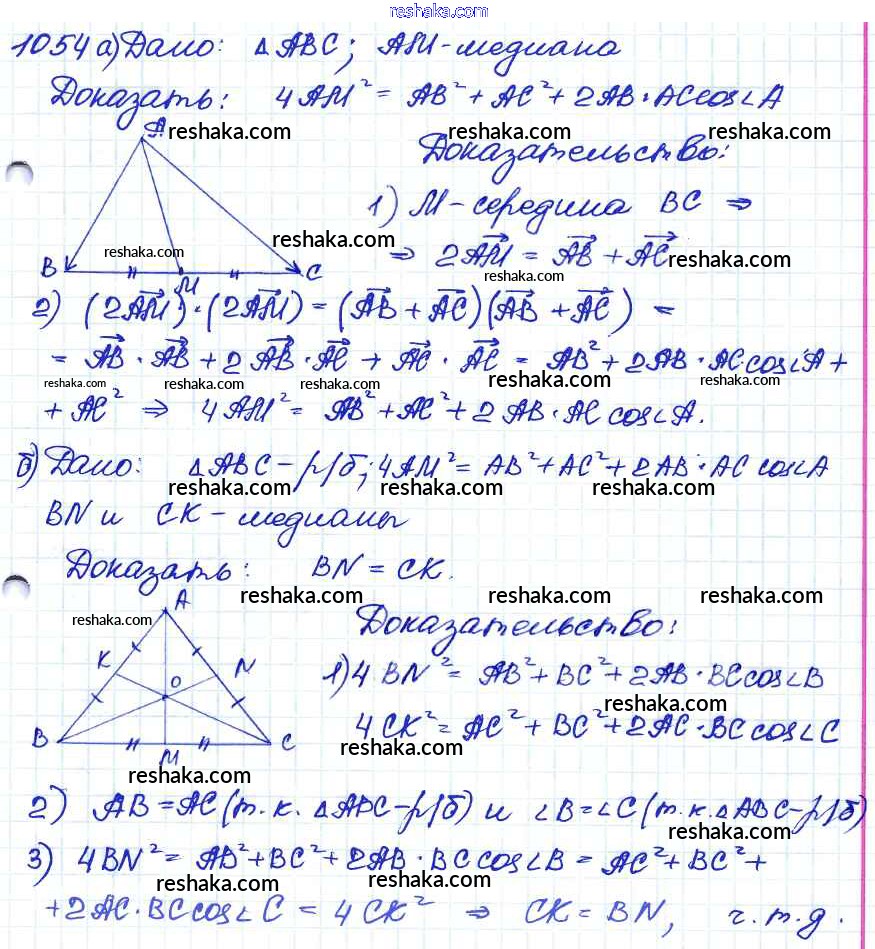 reshaka.com
1054 а) Дано: △ABC; AM - медиана
Доказать: 4AM² = AB² + AC² + 2AB · AC cos∠A
reshaka.com reshaka.com reshaka.com
A
Доказательство:
1) M - середина BC ⇒
reshaka.com reshaka.com
⇒ 2AM⃗ = AB⃗ + AC⃗ reshaka.com
B M C
reshaka.com
2) (2AM⃗) · (2AM⃗) = (AB⃗ + AC⃗)(AB⃗ + AC⃗) =
= AB⃗ · AB⃗ + 2AB⃗ · AC⃗ + AC⃗ · AC⃗ = AB² + 2AB · AC cos∠A +
reshaka.com reshaka.com reshaka.com reshaka.com reshaka.com
+ AC² ⇒ 4AM² = AB² + AC² + 2AB · AC cos∠A.
б) Дано: △ABC - р/б; 4AM² = AB² + AC² + 2AB · AC cos∠A
reshaka.com reshaka.com reshaka.com
BN и CK - медианы
Доказать: BN = CK.
reshaka.com reshaka.com reshaka.com
A
reshaka.com
Доказательство:
K O N
1) 4BN² = AB² + BC² + 2AB · BC cos∠B
reshaka.com
4CK² = AC² + BC² + 2AC · BC cos∠C
B M C
reshaka.com
reshaka.com
2) AB = AC (т.к. △ABC - р/б) и ∠B = ∠C (т.к. △ABC - р/б)
reshaka.com
3) 4BN² = AB² + BC² + 2AB · BC cos∠B = AC² + BC² +
reshaka.com reshaka.com reshaka.com
+ 2AC · BC cos∠C = 4CK² ⇒ CK = BN, ч.т.д.